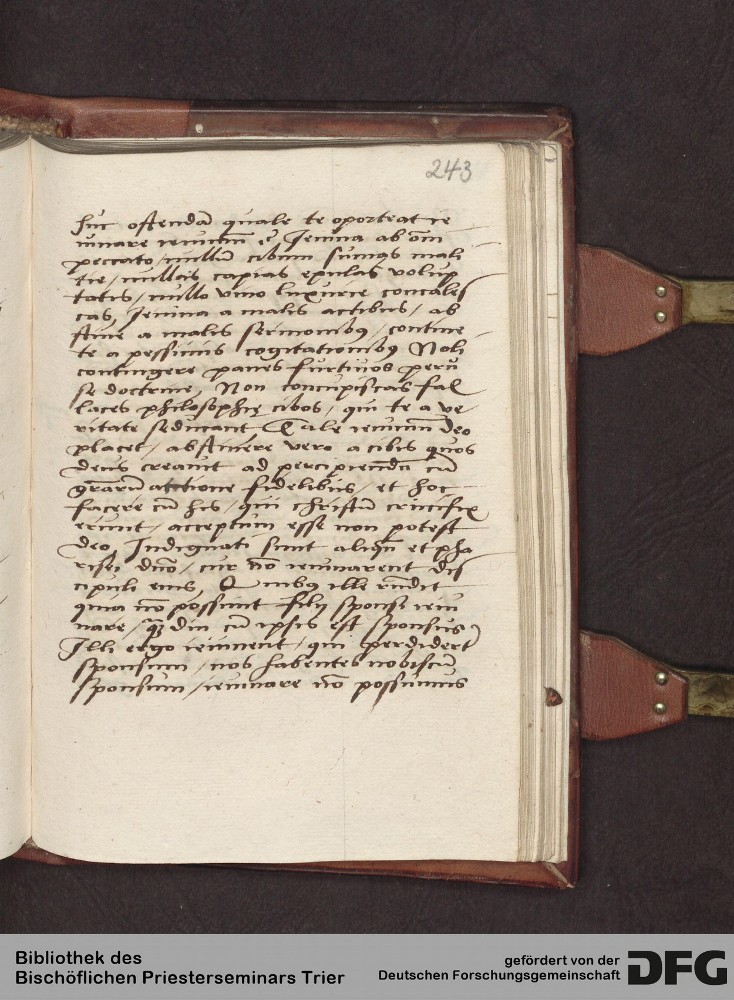 243
huc ostendā quale te oporteat ie
iunare ieiuniū ē Ieiuna ab om̄i
peccato / nullū cibum sumas mali
tie / nullas capias epulas volup
tatis / nullo vino luxurie concales
cas, Ieiuna a malis actibus / ab
stine a malis sermonibꝰ / contine
te a pessimis cogitationibꝰ Noli
contingere panes furtiuos peru
se doctrine, Non concupiscas fal
laces philosophię cibos / qui te a ve
ritate seducant Tale ieiuniū deo
placet / abstinere vero a cibis quos
deus creauit ad percipiendū cū
gr̄arū actione fidelibus / et hoc
facere cū his / qui christū crucifix
erunt / acceptum esse non potest
deo, Indignati sunt aliqn̄ et pha
risei dn̄o / cur nō ieiunarent dis
cipuli eius Quibꝰ ille rn̄dit
quia nō possunt filij sponsi ieiu
nare / qƺ diu cū ipsis est sponsus
Illi ergo ieiunent / qui perdidert̄
sponsum / nos habentes nobiscū
sponsum / ieiunare nō possumus
Bibliothek des
Bischöflichen Priesterseminars Trier
gefördert von der
Deutschen Forschungsgemeinschaft
DFG